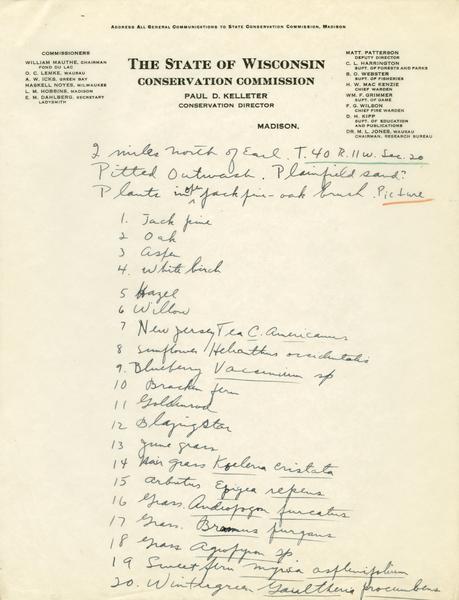 ADDRESS ALL GENERAL COMMUNICATIONS TO STATE CONSERVATION COMMISSION, MADISON
COMMISSIONERS
WILLIAM MAUTHE, CHAIRMAN
FOND DU LAC
O. C. LEMKE, WAUSAU
A. W. ICKS, GREEN BAY
HASKELL NOYES, MILWAUKEE
L. M. HOBBINS, MADISON
E. M. DAHLBERG, SECRETARY
LADYSMITH
THE STATE OF WISCONSIN
CONSERVATION COMMISSION
PAUL D. KELLETER
CONSERVATION DIRECTOR
MADISON,
MATT. PATTERSON
DEPUTY DIRECTOR
C. L. HARRINGTON
SUPT. OF FORESTS AND PARKS
B. O. WEBSTER
SUPT. OF FISHERIES
H. W. MAC KENZIE
CHIEF WARDEN
WM. F. GRIMMER
SUPT. OF GAME
F. G. WILSON
CHIEF FIRE WARDEN
D. H. KIPP
SUPT. OF EDUCATION
AND PUBLICATIONS
DR. M. L. JONES, WAUSAU
CHAIRMAN, RESEARCH BUREAU
2 miles North of Earl. T. 40 R. 11 W. Sec. 20
Pitted Outwash. Plainfield sand?
Plants in jack pine-oak brush. Picture
1. Jack pine
2 Oak
3 Aspen
4. White birch
5 Hazel
6 Willow
7 New Jersey Tea C. Americanus
8 Sunflower / Helianthus occidentalis
9. Blueberry Vaccinium sp
10 Bracken fern
11 Goldenrod
12 Blazing Star
13 June grass
14 Hair grass Koeleria cristata
15 Arbutus Epigea repens
16 Grass. Andropogon furcatus
17 Grass. Bromus purgans
18 Grass Agropyron sp
19 Sweet fern Myrica asplenifolium
20. Wintergreen Gaultheria procumbens